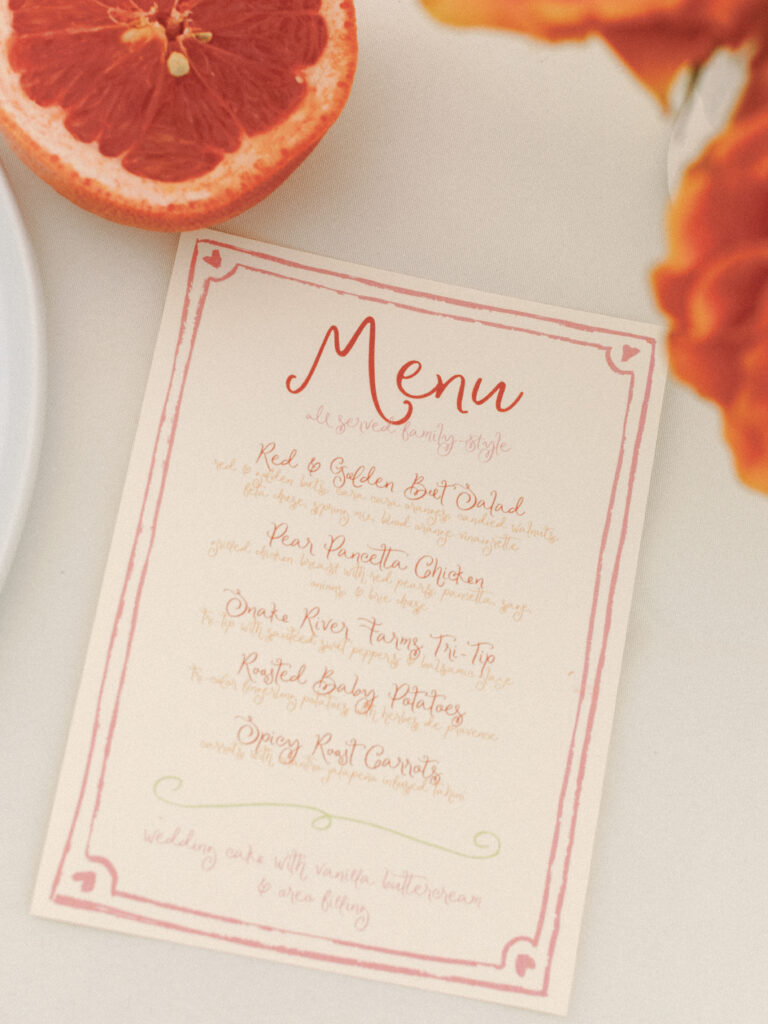 Menu
all served family-style
Red & Golden Beet Salad
red & golden beets, cara cara oranges, candied walnuts,
feta cheese, spring mix, blood orange vinaigrette
Pear Pancetta Chicken
grilled chicken breast with red pears, pancetta, sage,
onions, & brie cheese
Snake River Farms Tri-Tip
tri-tip with sauteed sweet peppers & balsamic glaze
Roasted Baby Potatoes
tri-color fingerling potatoes with herbes de provence
Spicy Roast Carrots
carrots with jalapeña infused
wedding cake with vanilla buttercream
& oreo filling